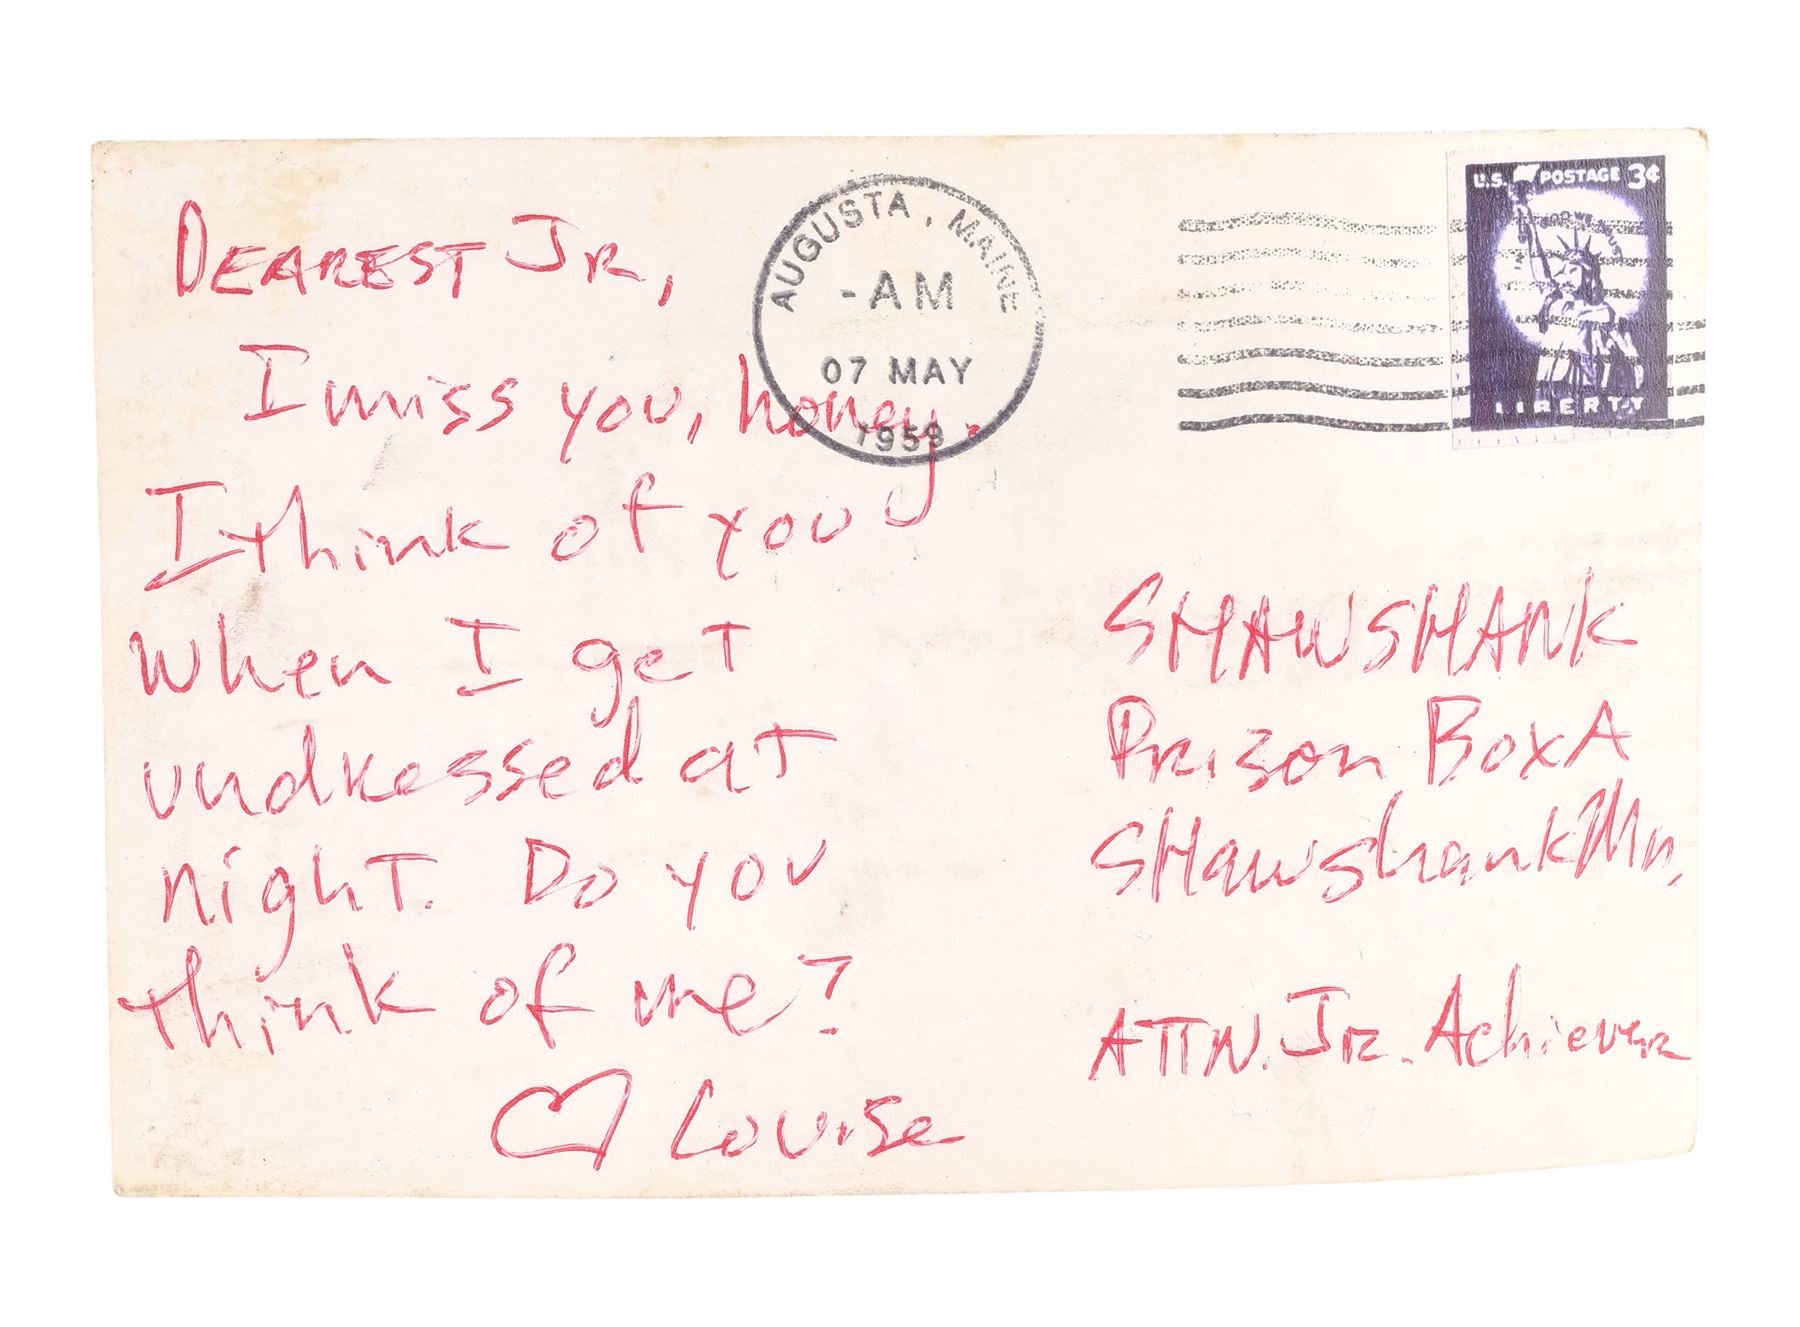 DEAREST JR,
I miss you, honey.
I think of you
when I get
undressed at
night. Do you
think of me?
♡ Louise
AUGUSTA, MAINE
-AM
07 MAY
1959
U.S. POSTAGE 3¢
IN GOD WE TRUST
LIBERTY
SHAWSHANK
Prison Box A
SHawshank Mn,
ATTN. JR. Achiever